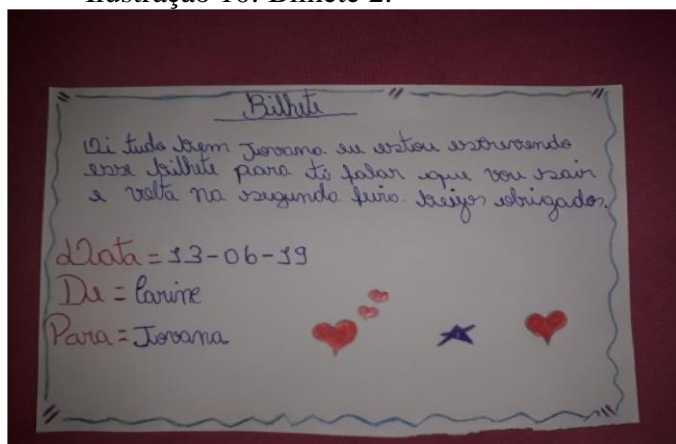 Ilustração 10: Bilhete 2.
Bilhete
Oi tudo bem Jovana eu estou escrevendo
esse bilhete para ti falar que vou sair
e volta na segunda feira beijos obrigados.
Data = 13-06-19
De = Carine
Para = Jovana